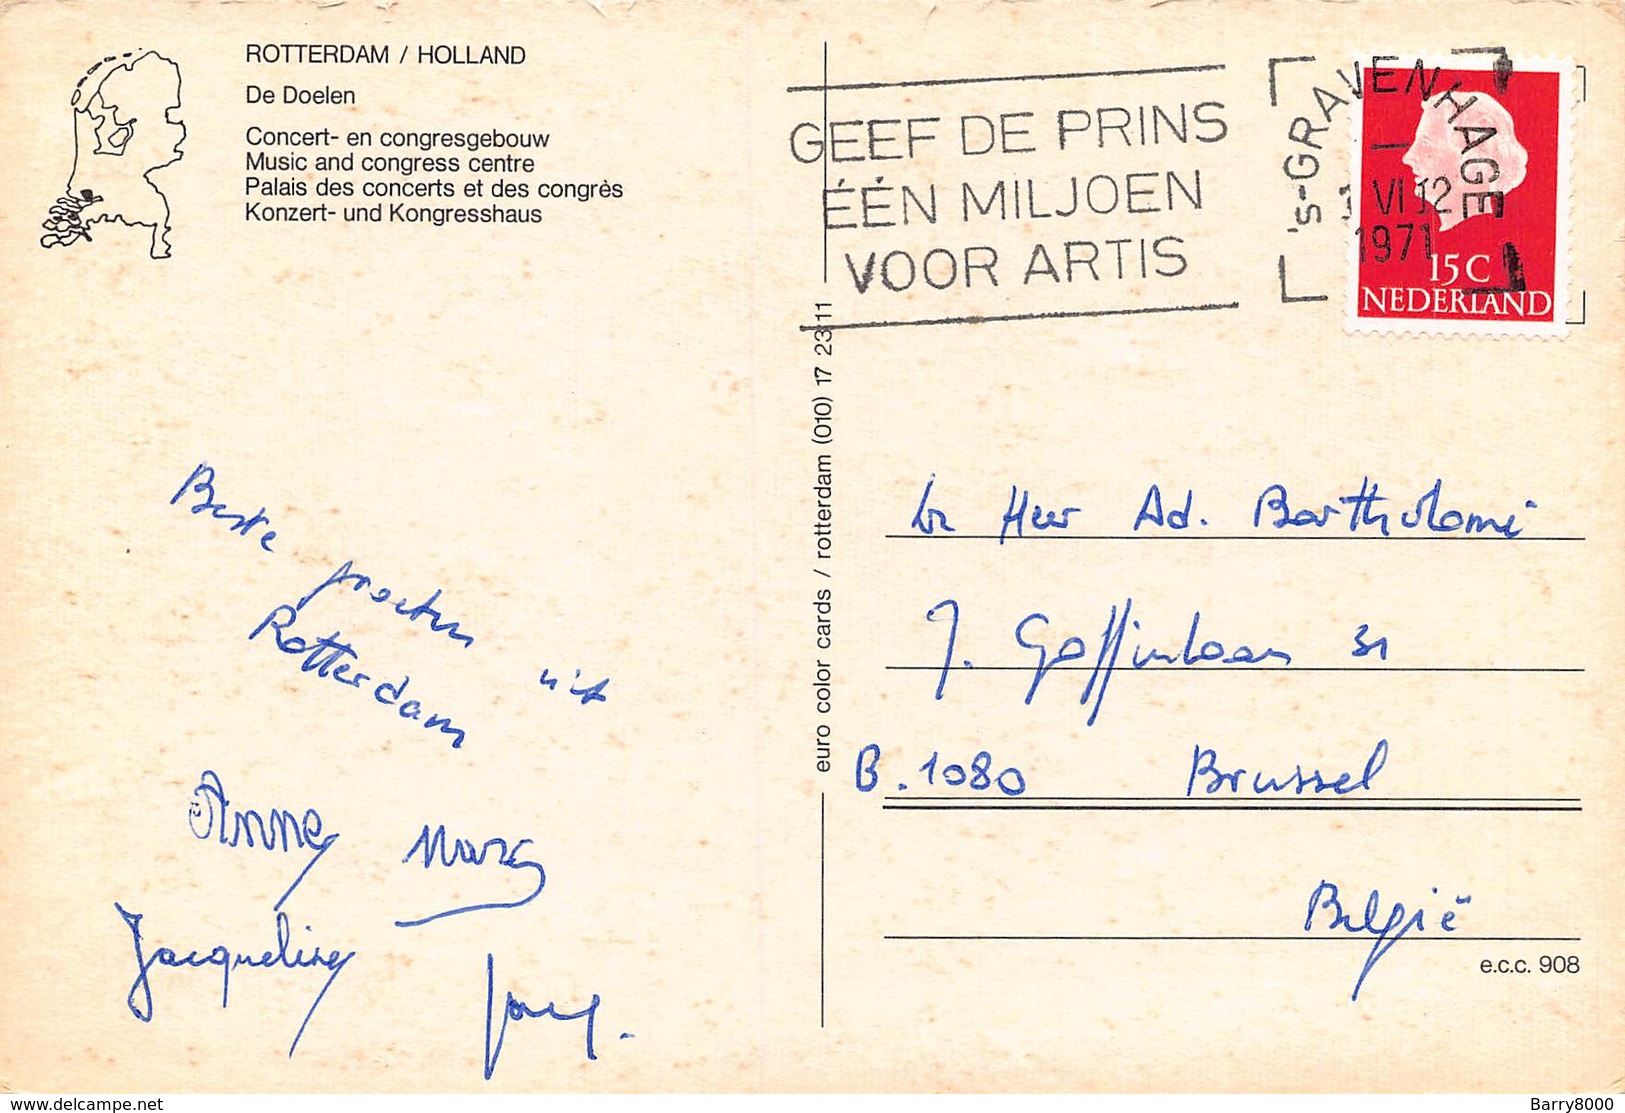 ROTTERDAM / HOLLAND
De Doelen
Concert- en congresgebouw
Music and congress centre
Palais des concerts et des congrès
Konzert- und Kongresshaus
GEEF DE PRINS
ÉÉN MILJOEN
VOOR ARTIS
's-GRAVENHAGE
VI 12
1971
15 C
NEDERLAND
euro color cards / rotterdam (010) 17 23 11
Beste groeten uit
Rotterdam
Anne
Jacqueline
De Heer Ad. Bartholomé
J. Goffinlaan 31
B. 1080 Brussel
België
e.c.c. 908
delcampe.net
Barry8000